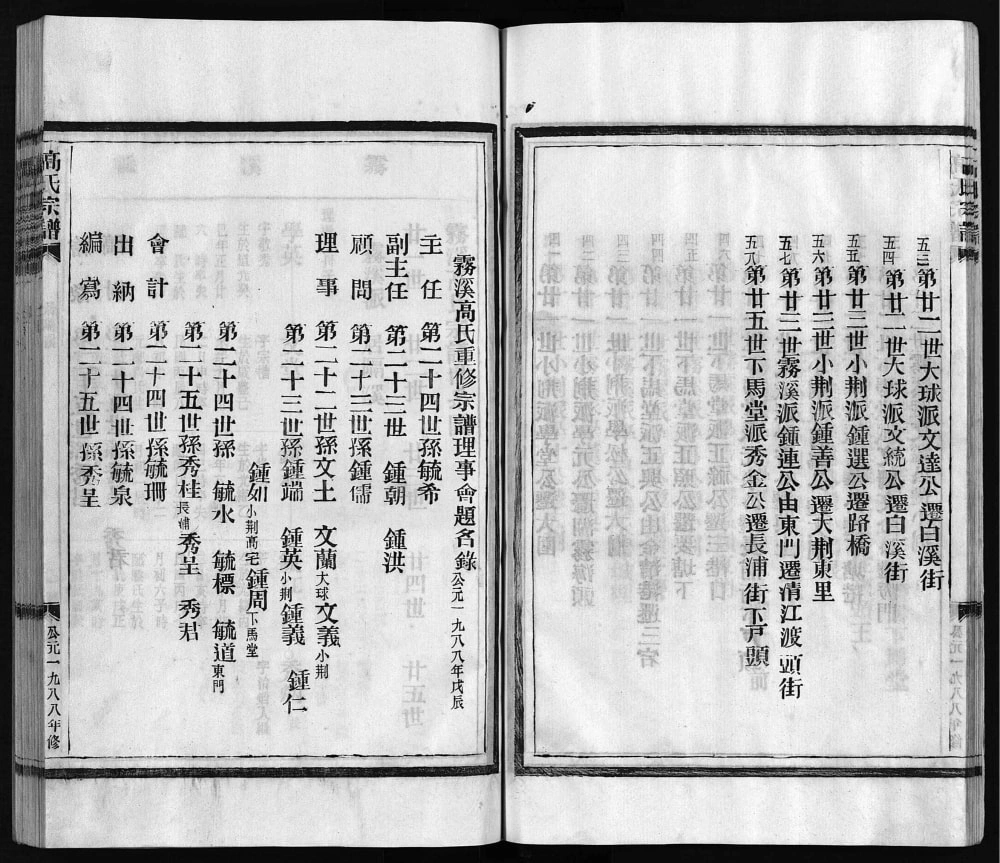 五三第廿二世大球派文達公遷白溪街
五四第廿二世大球派文統公遷白溪街
五五第廿三世小荆派鍾選公遷路橋
五六第廿三世小荆派鍾善公遷大荆東里
五七第廿三世霧溪派鍾連公由東門遷清江渡頭街
五八第廿五世下馬堂派秀金公遷長浦街下戸頭
霧溪高氏重修宗譜理事會題名錄公元一九八八年戊辰
主任 第二十四世孫毓希
副主任 第二十三世 鍾朝 鍾洪
顧問 第二十三世孫鍾儒
理事 第二十二世孫文土 文蘭大球文義小荆
第二十三世孫鍾端 鍾英小荆鍾義 鍾仁
鍾如小荆高宅鍾周下馬堂
第二十四世孫 毓水 毓標 毓道東門
第二十五世孫秀桂長浦秀呈 秀君
會計 第二十四世孫毓珊
出納 第二十四世孫毓泉
編寫 第二十五世孫秀呈
高氏宗譜
公元一九八八年修